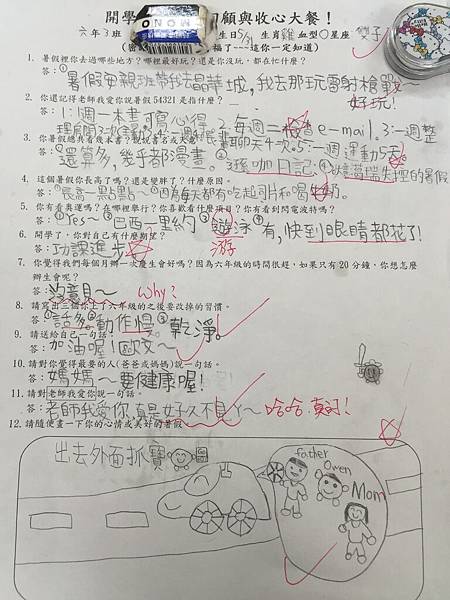 開學 顧與收心大餐！
MONO
六年3班 生日5/31 生肖雞 血型O 星座雙子
福了---這你一定知道)
1. 暑假裡你去過哪些地方？哪裡最好玩？還是你沒玩，都在忙什麼？
答：暑假安親班帶我去晶華城，我去那玩雷射槍戰～
好玩！
2. 你還記得老師我愛你說暑假54321是指什麼？
答：
3. 你暑假總共看幾本書？說說書名或大意
答：還算多，幾乎都漫畫。
4. 這個暑假你長高了嗎？還是變胖了？什麼原因。
答：①長高一點點～②因為每天都有吃起司片和喝牛奶。
5. 你有看奧運嗎？在哪裡舉行？你喜歡看什麼項目？你有看到閃電波特嗎？
答：①Yes～②巴西－里約 ③遊泳 ④有，快到眼睛都花了！
游
6. 開學了，你對自己有什麼期望？
答：功課進步
7. 你覺得我們每個月辦一次慶生會好嗎？因為六年級的時間很趕，如果只有20分鐘，你想怎麼
辦生會呢？
答：沒意見～ why?
8. 請寫出三個你上了六年級的之後要改掉的習慣。
答：①話多。②動作慢。③乾淨。
9. 請送給自己一句話。
答：加油喔！歐文～
10. 對你覺得最要的人(爸爸或媽媽)說一句話。
答：媽媽～要健康喔！
11. 請對老師我愛你說一句話。
答：老師我愛你，真是好久不見ㄚ～ 哈哈
12. 請隨便畫一下你的心情或美好的暑假
出去外面抓寶
father
Owen
Mom